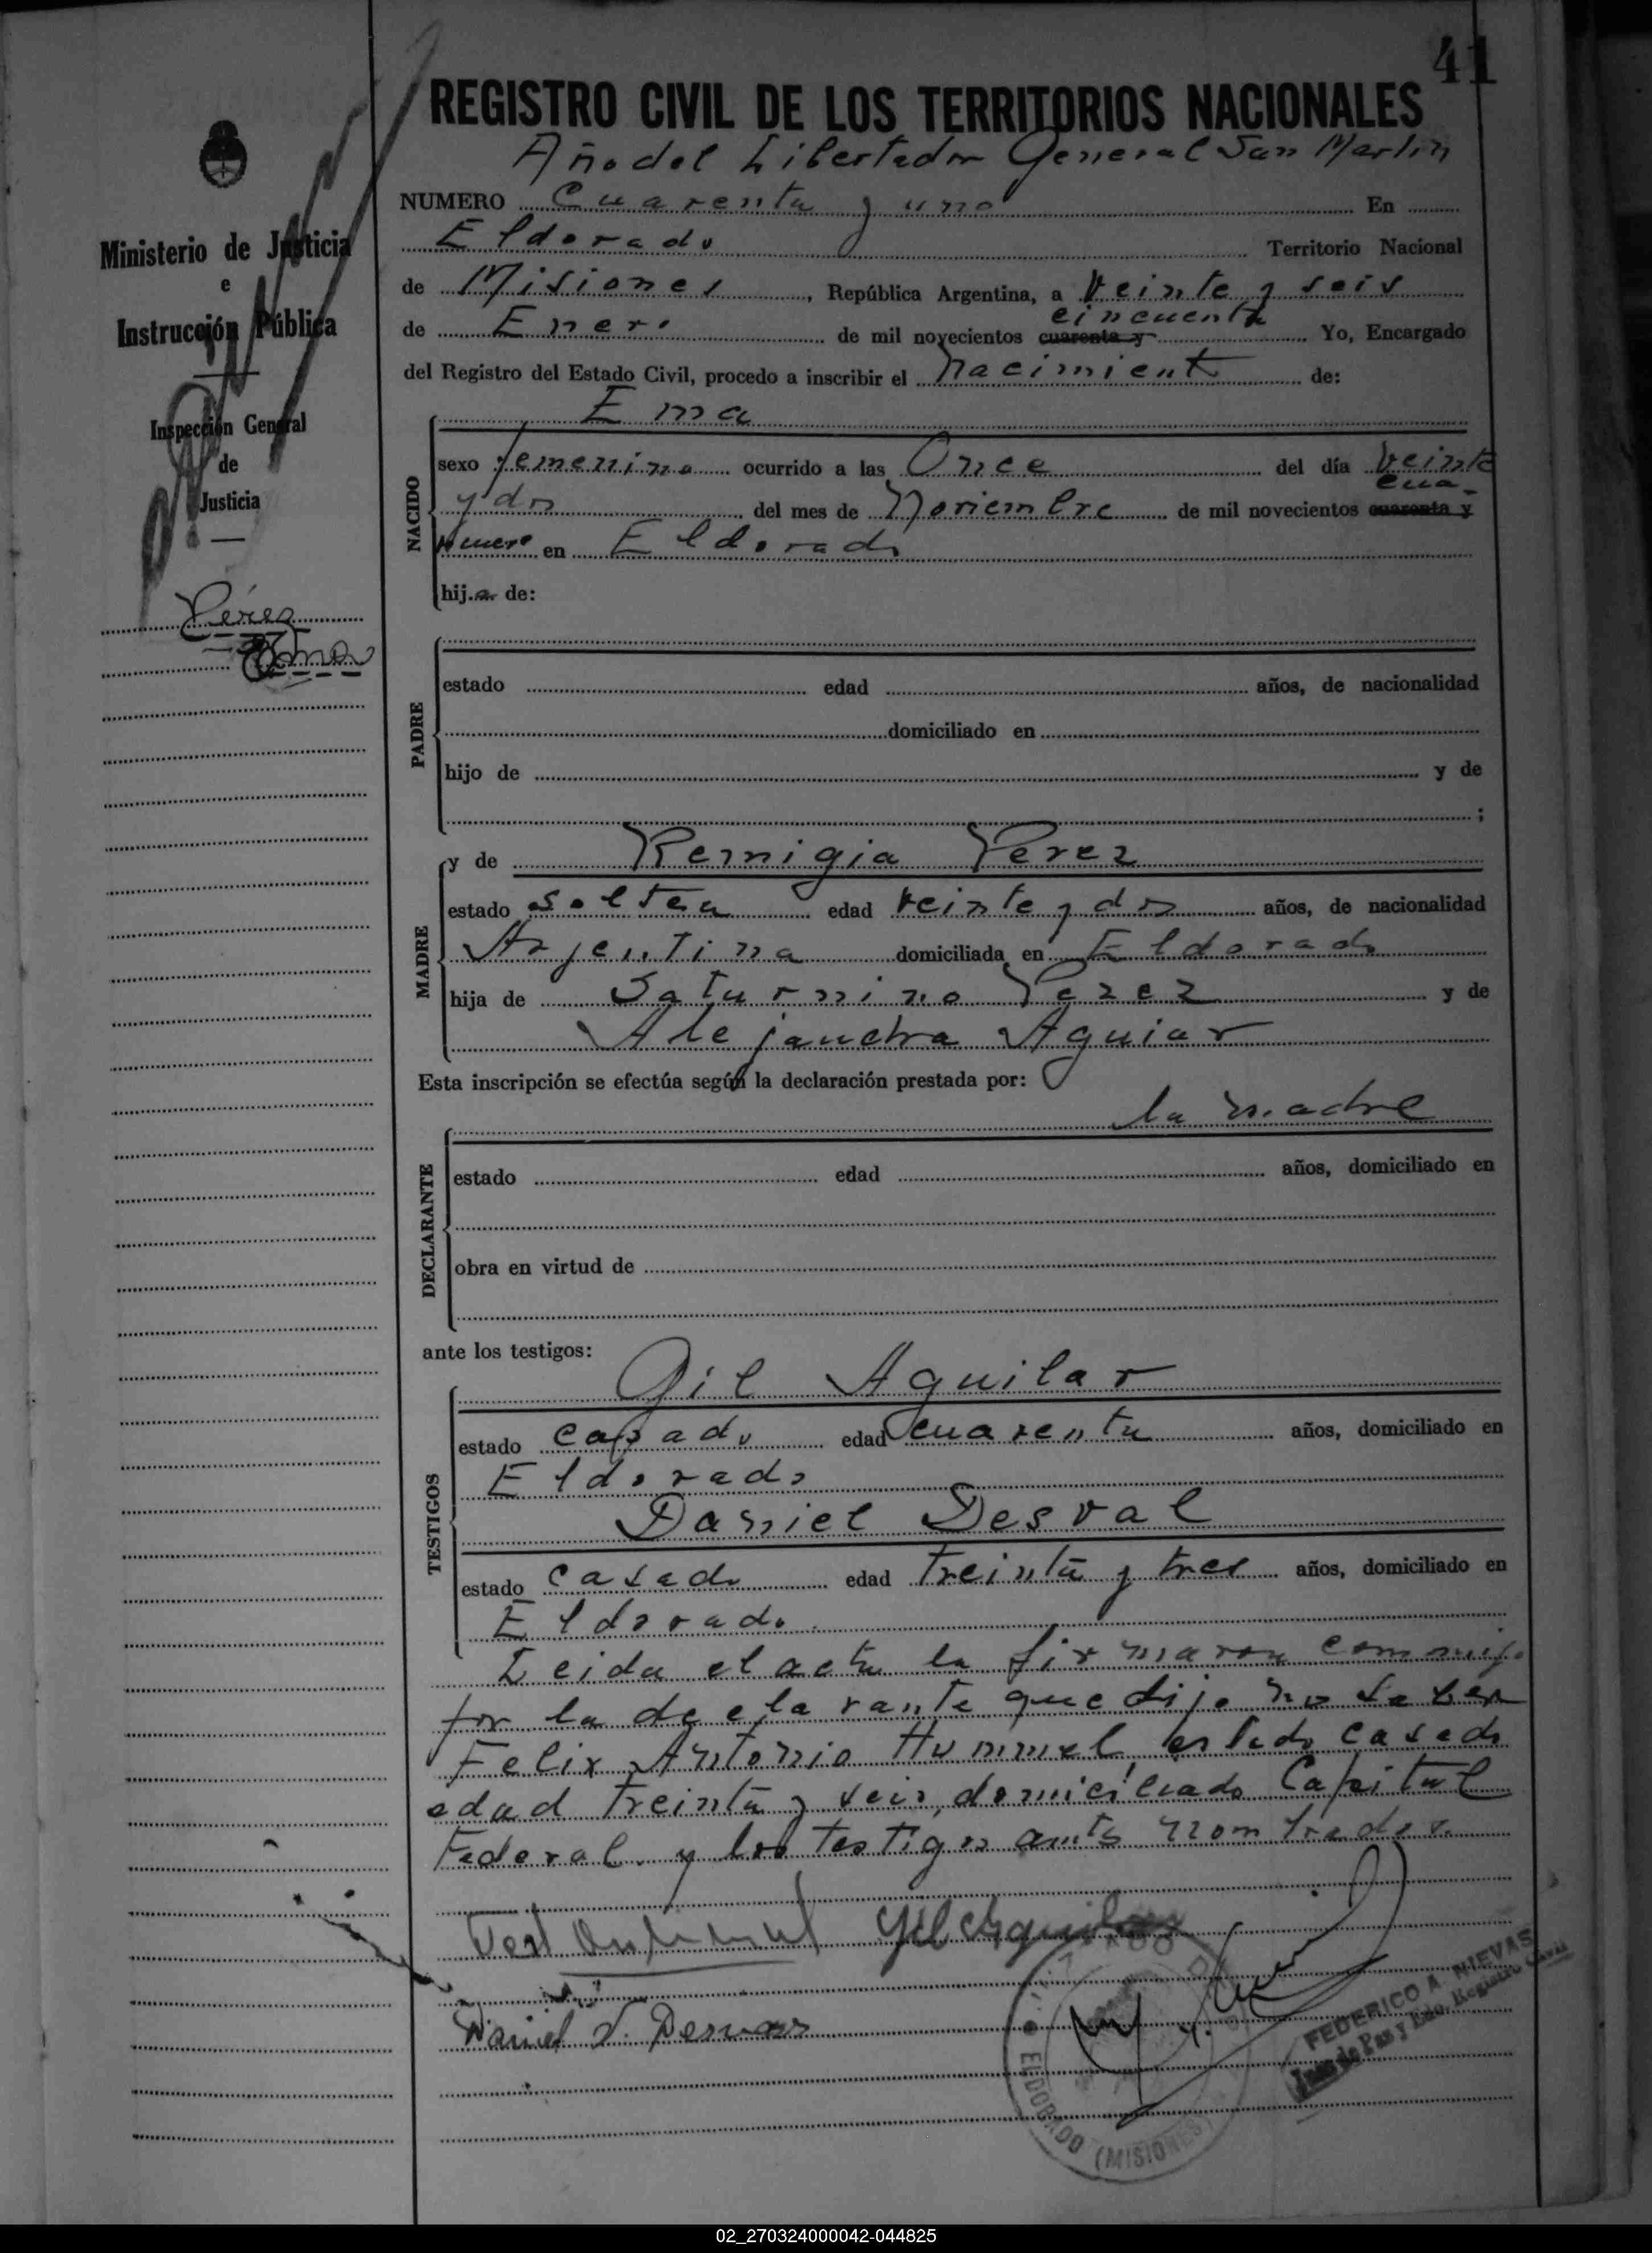 41
REGISTRO CIVIL DE LOS TERRITORIOS NACIONALES
Año del Libertador General San Martin
NUMERO Cuarenta y uno En
Eldorado Territorio Nacional
de Misiones, República Argentina, a veinte y seis
cincuenta
de Enero de mil novecientos cuarenta y Yo, Encargado
del Registro del Estado Civil, procedo a inscribir el nacimiento de:
Ministerio de Justicia
e
Instrucción Pública
Inspección General
de
Justicia
Pérez
Ema
NACIDO
Ema
sexo femenino ocurrido a las Once del día veinte
cua-
y dos del mes de Noviembre de mil novecientos cuarenta y
nueve en Eldorado
hija de:
PADRE
estado edad años, de nacionalidad
domiciliado en
hijo de y de
;
MADRE
y de Remigia Perez
estado soltera edad veinte y dos años, de nacionalidad
Argentina domiciliada en Eldorado
hija de Saturnino Perez y de
Alejandra Aguiar
Esta inscripción se efectúa según la declaración prestada por:
la madre
DECLARANTE
estado edad años, domiciliado en
obra en virtud de
ante los testigos:
TESTIGOS
Gil Aguilar
estado casado edad cuarenta años, domiciliado en
Eldorado
Daniel Desval
estado casado edad treinta y tres años, domiciliado en
Eldorado
Leida el acta la firmaron conmigo
por la declarante que dijo no saber
Felix Antonio Hummel, estado casado
edad treinta y seis, domiciliado Capital
Federal y los testigos antes nombrados.
Gil Aguilar
Daniel
FEDERICO A. NIEVAS
Juez de Paz y Edo. Registro Civil
ELDORADO (MISIONES)
02_270324000042-044825